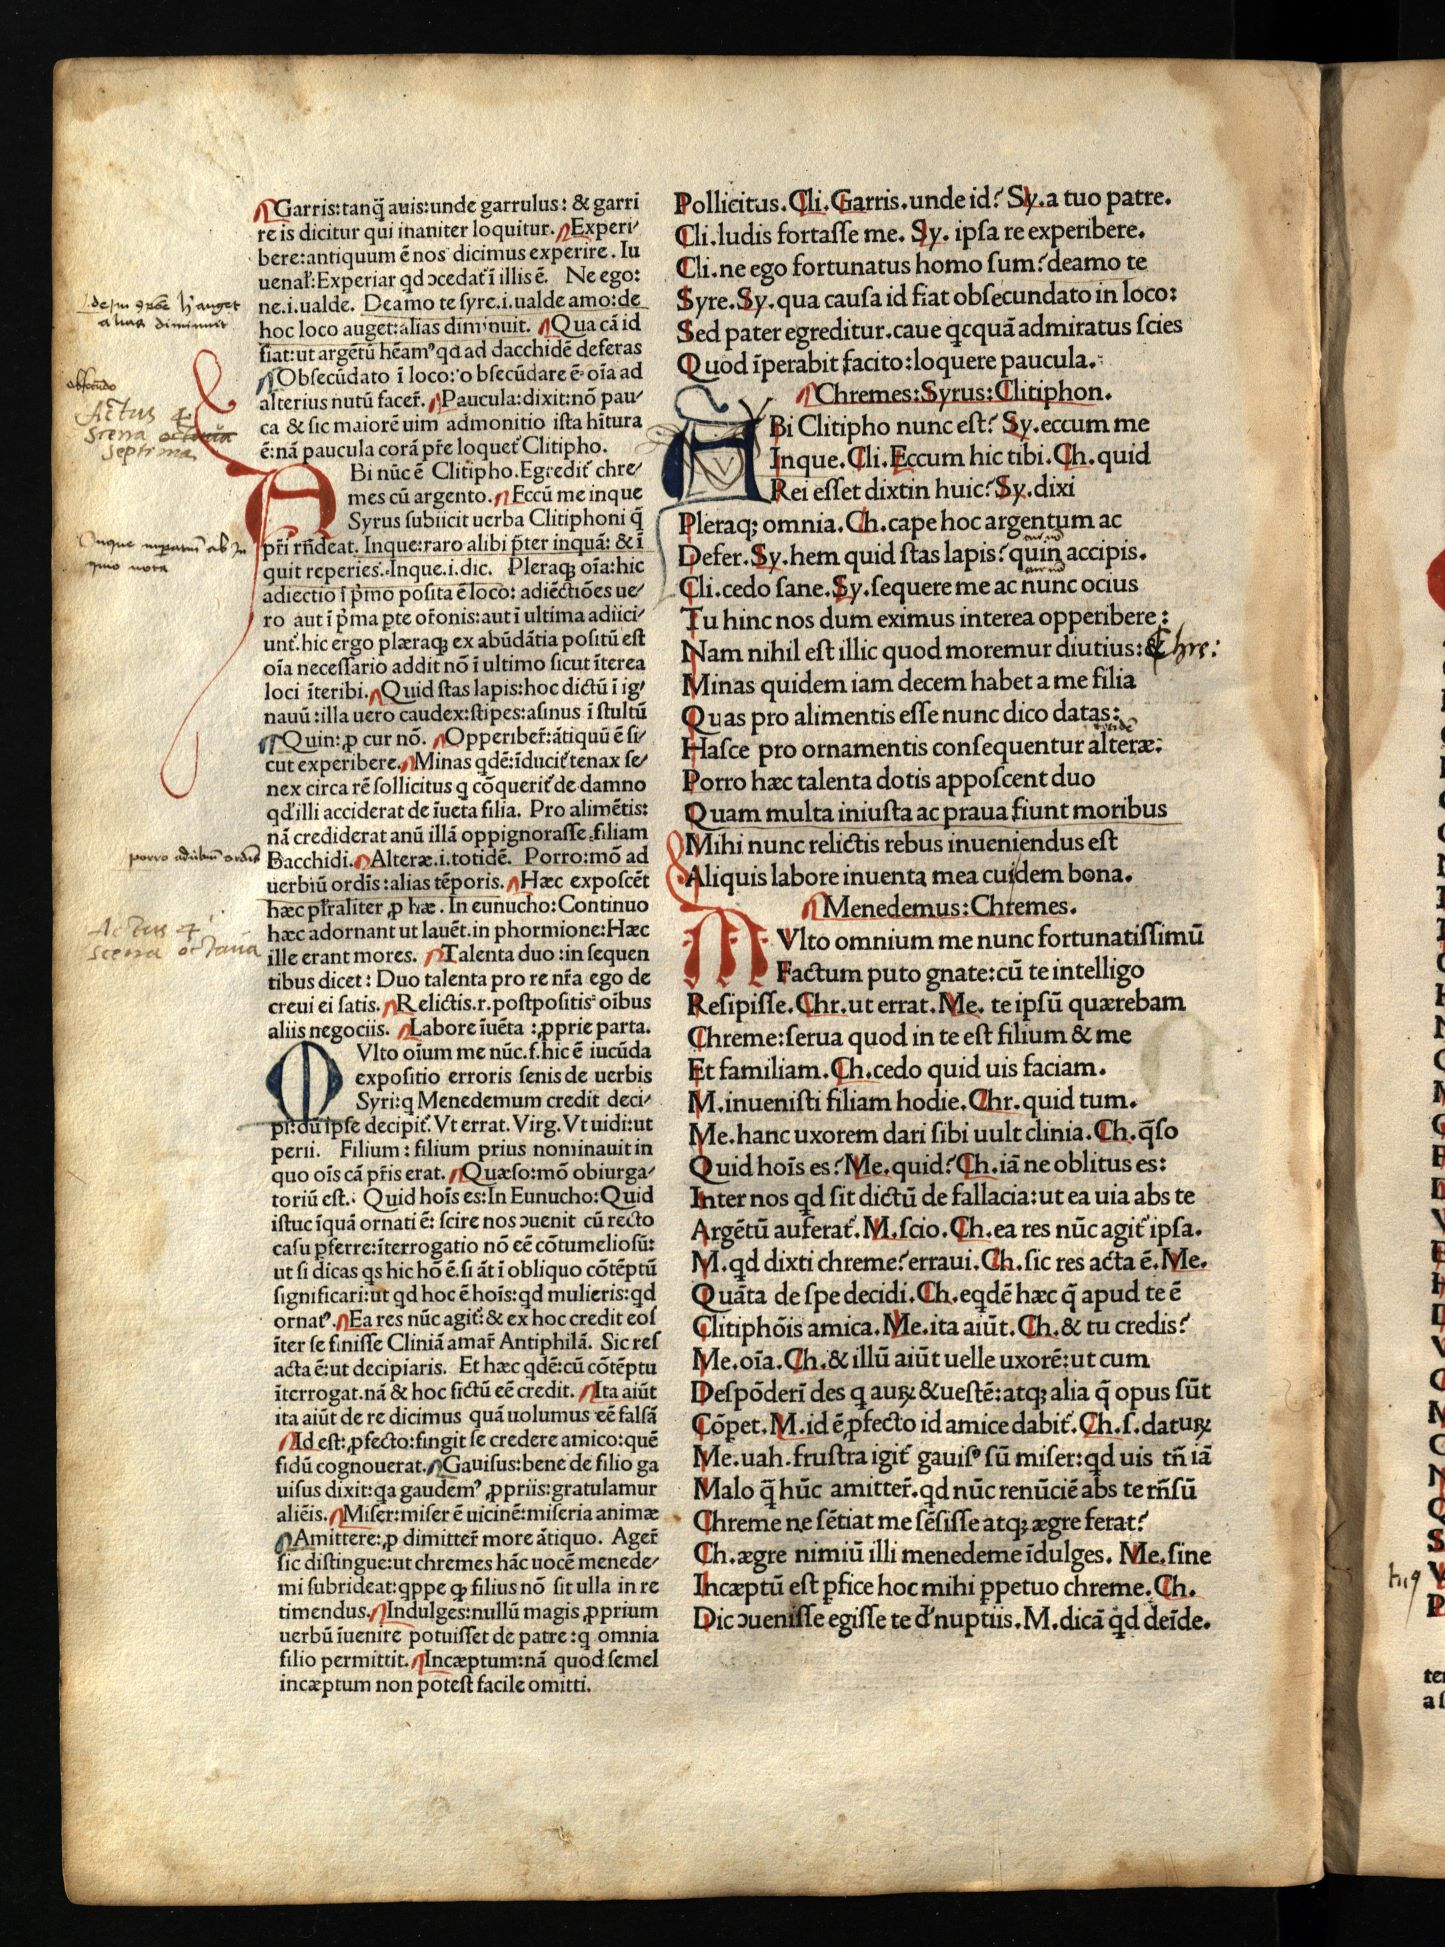 Garris:tanq̃ auis:unde garrulus: & garri
re is dicitur qui inaniter loquitur. Experi⸗
bere:antiquum ē nos dicimus experire. Iu
uenal̃:Experiar qd ɔcedat̃ ī illis ē. Ne ego:
ne.i.ualde. Deamo te syre.i.ualde amo:de
hoc loco auget:alias diminuit. Qua cā id
fiat:ut argētū hēamꝰ qd ad dacchidē deferas
Obsecūdato ī loco: obsecūdare ē oīa ad
alterius nutū facer̃. Paucula:dixit:nō pau⸗
ca & sic maiorē uim admonitio ista hr̃tura
ē:nā paucula corā pr̃e loquet̃ Clitipho.
ABi nūc ē Clitipho.Egredit̃ chre⸗
mes cū argento. Eccū me inque
Syrus subiicit uerba Clitiphoni q̃
pr̃i rñdeat. Inque:raro alibi p̃ter inquā: & ī
quit reperies. Inque.i.dic. Pleraqꝫ oīa:hic
adiectio ī p̃mo posita ē loco: adiēctiōes ue⸗
ro aut ī p̃ma ꝑte or̃onis:aut ī ultima adiici⸗
unt̃.hic ergo plæraqꝫ ex abūdātia positū est
oīa necessario addit nō ī ultimo sicut īterea
loci īteribi. Quid stas lapis:hoc dictū ī ig⸗
nauū:illa uero caudex:stipes:asinus ī stultū
Quin:ꝓ cur nō. Opperiber̃:ātiquū ē si⸗
cut experibere. Minas qdē:īducit̃ tenax se⸗
nex circa rē sollicitus q cōquerit̃ de damno
qd illi acciderat de īueta filia. Pro alimētis:
nā crediderat anū illā oppignorasse filiam
Bacchidi. Alteræ.i.totidē. Porro:mō ad
uerbiū ordīs:alias tēporis. Hæc exposcēt
hæc plr̃aliter ꝓ hæ. In eunucho:Continuo
hæc adornant ut lauēt.in phormione:Hæc
ille erant mores. Talenta duo:in sequen
tibus dicet: Duo talenta pro re nr̃a ego de
creui ei satis. Relictis.r.postpositis oībus
aliis negociis. Labore īuēta:ꝓprie parta.
MVlto oīum me nūc.f.hic ē iucūda
expositio erroris senis de uerbis
Syri:q Menedemum credit deci⸗
pi:dū ipse decipit̃. Vt errat. Virg. Vt uidi:ut
perii. Filium: filium prius nominauit in
quo oīs cā pr̃is erat. Quæso:mō obiurga⸗
toriū est. Quid hoīs es:In Eunucho:Quid
istuc īquā ornati ē: scire nos ɔuenit cū recto
casu ꝓferre:īterrogatio nō eē cōtumeliosū:
ut si dicas qs hic hō ē.si āt ī obliquo cōtēptū
significari:ut qd hoc ē hoīs:qd mulieris:qd
ornatꝰ. Ea res nūc agit̃:& ex hoc credit eos
īter se finisse Cliniā amar̃ Antiphilā. Sic res
acta ē:ut decipiaris. Et hæc qdē:cū cōtēptu
īterrogat.nā & hoc fictū eē credit. Ita aiūt
ita aiūt de re dicimus quā uolumus eē falsā
Id est:ꝓfecto:fingit se credere amico:quē
fidū cognouerat. Gauisus:bene de filio ga
uisus dixit:qa gaudemꝰ ꝓpriis:gratulamur
aliēis. Miser:miser ē uicinē:miseria animæ
Amittere:ꝓ dimitter̃ more ātiquo. Ager̃
sic distingue:ut chremes hāc uocē menede⸗
mi subrideat:qppe qꝫ filius nō sit ulla in re
timendus. Indulges:nullū magis ꝓprium
uerbū īuenire potuisset de patre:q omnia
filio permittit. Incæptum:nā quod semel
incæptum non potest facile omitti.
obsecundo
Actus 4
Scena octaua
septima
porro adubiū ordīs
Actus 4
scena octaua
Pollicitus.Cli.Garris.unde id? Sy.a tuo patre.
Cli.ludis fortasse me. Sy. ipsa re experibere.
Cli.ne ego fortunatus homo sum?deamo te
Syre.Sy.qua causa id fiat obsecundato in loco:
Sed pater egreditur.caue qcquā admiratus scies
Quod īperabit facito:loquere paucula.
Chremes:Syrus:Clitiphon.
ABi Clitipho nunc est? Sy.eccum me
Inque.Cli.Eccum hic tibi.Ch.quid
Rei esset dixtin huic?Sy.dixi
Pleraqꝫ omnia.Ch.cape hoc argentum ac
Defer.Sy.hem quid stas lapis?quin accipis.
Cli.cedo sane.Sy.sequere me ac nunc ocius
Tu hinc nos dum eximus interea opperibere:
Nam nihil est illic quod moremur diutius: Chre:
Minas quidem iam decem habet a me filia
Quas pro alimentis esse nunc dico datas:
Hasce pro ornamentis consequentur alteræ:
Porro hæc talenta dotis apposcent duo
Quam multa iniusta ac praua fiunt moribus
Mihi nunc relictis rebus inueniendus est
Aliquis labore inuenta mea cuidem bona.
Menedemus:Chremes.
MVlto omnium me nunc fortunatissimū
Factum puto gnate:cū te intelligo
Resipisse.Chr.ut errat.Me. te ipsū quærebam
Chreme:serua quod in te est filium & me
Et familiam.Ch.cedo quid uis faciam.
M.inuenisti filiam hodie.Chr.quid tum.
Me.hanc uxorem dari sibi uult clinia.Ch.q̃so
Quid hoīs es?Me.quid?Ch.iā ne oblitus es:
Inter nos qd sit dictū de fallacia:ut ea uia abs te
Argētū auferat̃.M.scio.Ch.ea res nūc agit̃ ipsa.
M.qd dixti chreme?erraui.Ch.sic res acta ē.Me.
Quāta de spe decidi.Ch.eqdē hæc q̃ apud te ē
Clitiphōis amica.Me.ita aiūt.Ch.& tu credis?
Me.oīa.Ch.& illū aiūt uelle uxorē:ut cum
Despōderī des q auꝝ &uestē:atqꝫ alia q̃ opus sūt
Cōpet.M.id ē ꝓfecto id amice dabit̃.Ch.s.datuꝝ
Me.uah.frustra igit̃ gauisꝰ sū miser:qd uis tñ iā
Malo q̃ hūc amitter̃.qd nūc renūciē abs te rñsū
Chreme ne sētiat me sēsisse atqꝫ ægre ferat?
Ch.ægre nimiū illi menedeme īdulges. Me.sine
Incæptū est ꝑfice hoc mihi ꝑpetuo chreme.Ch.
Dic ɔuenisse egisse te d' nuptiis.M.dicā q̃d deīde.